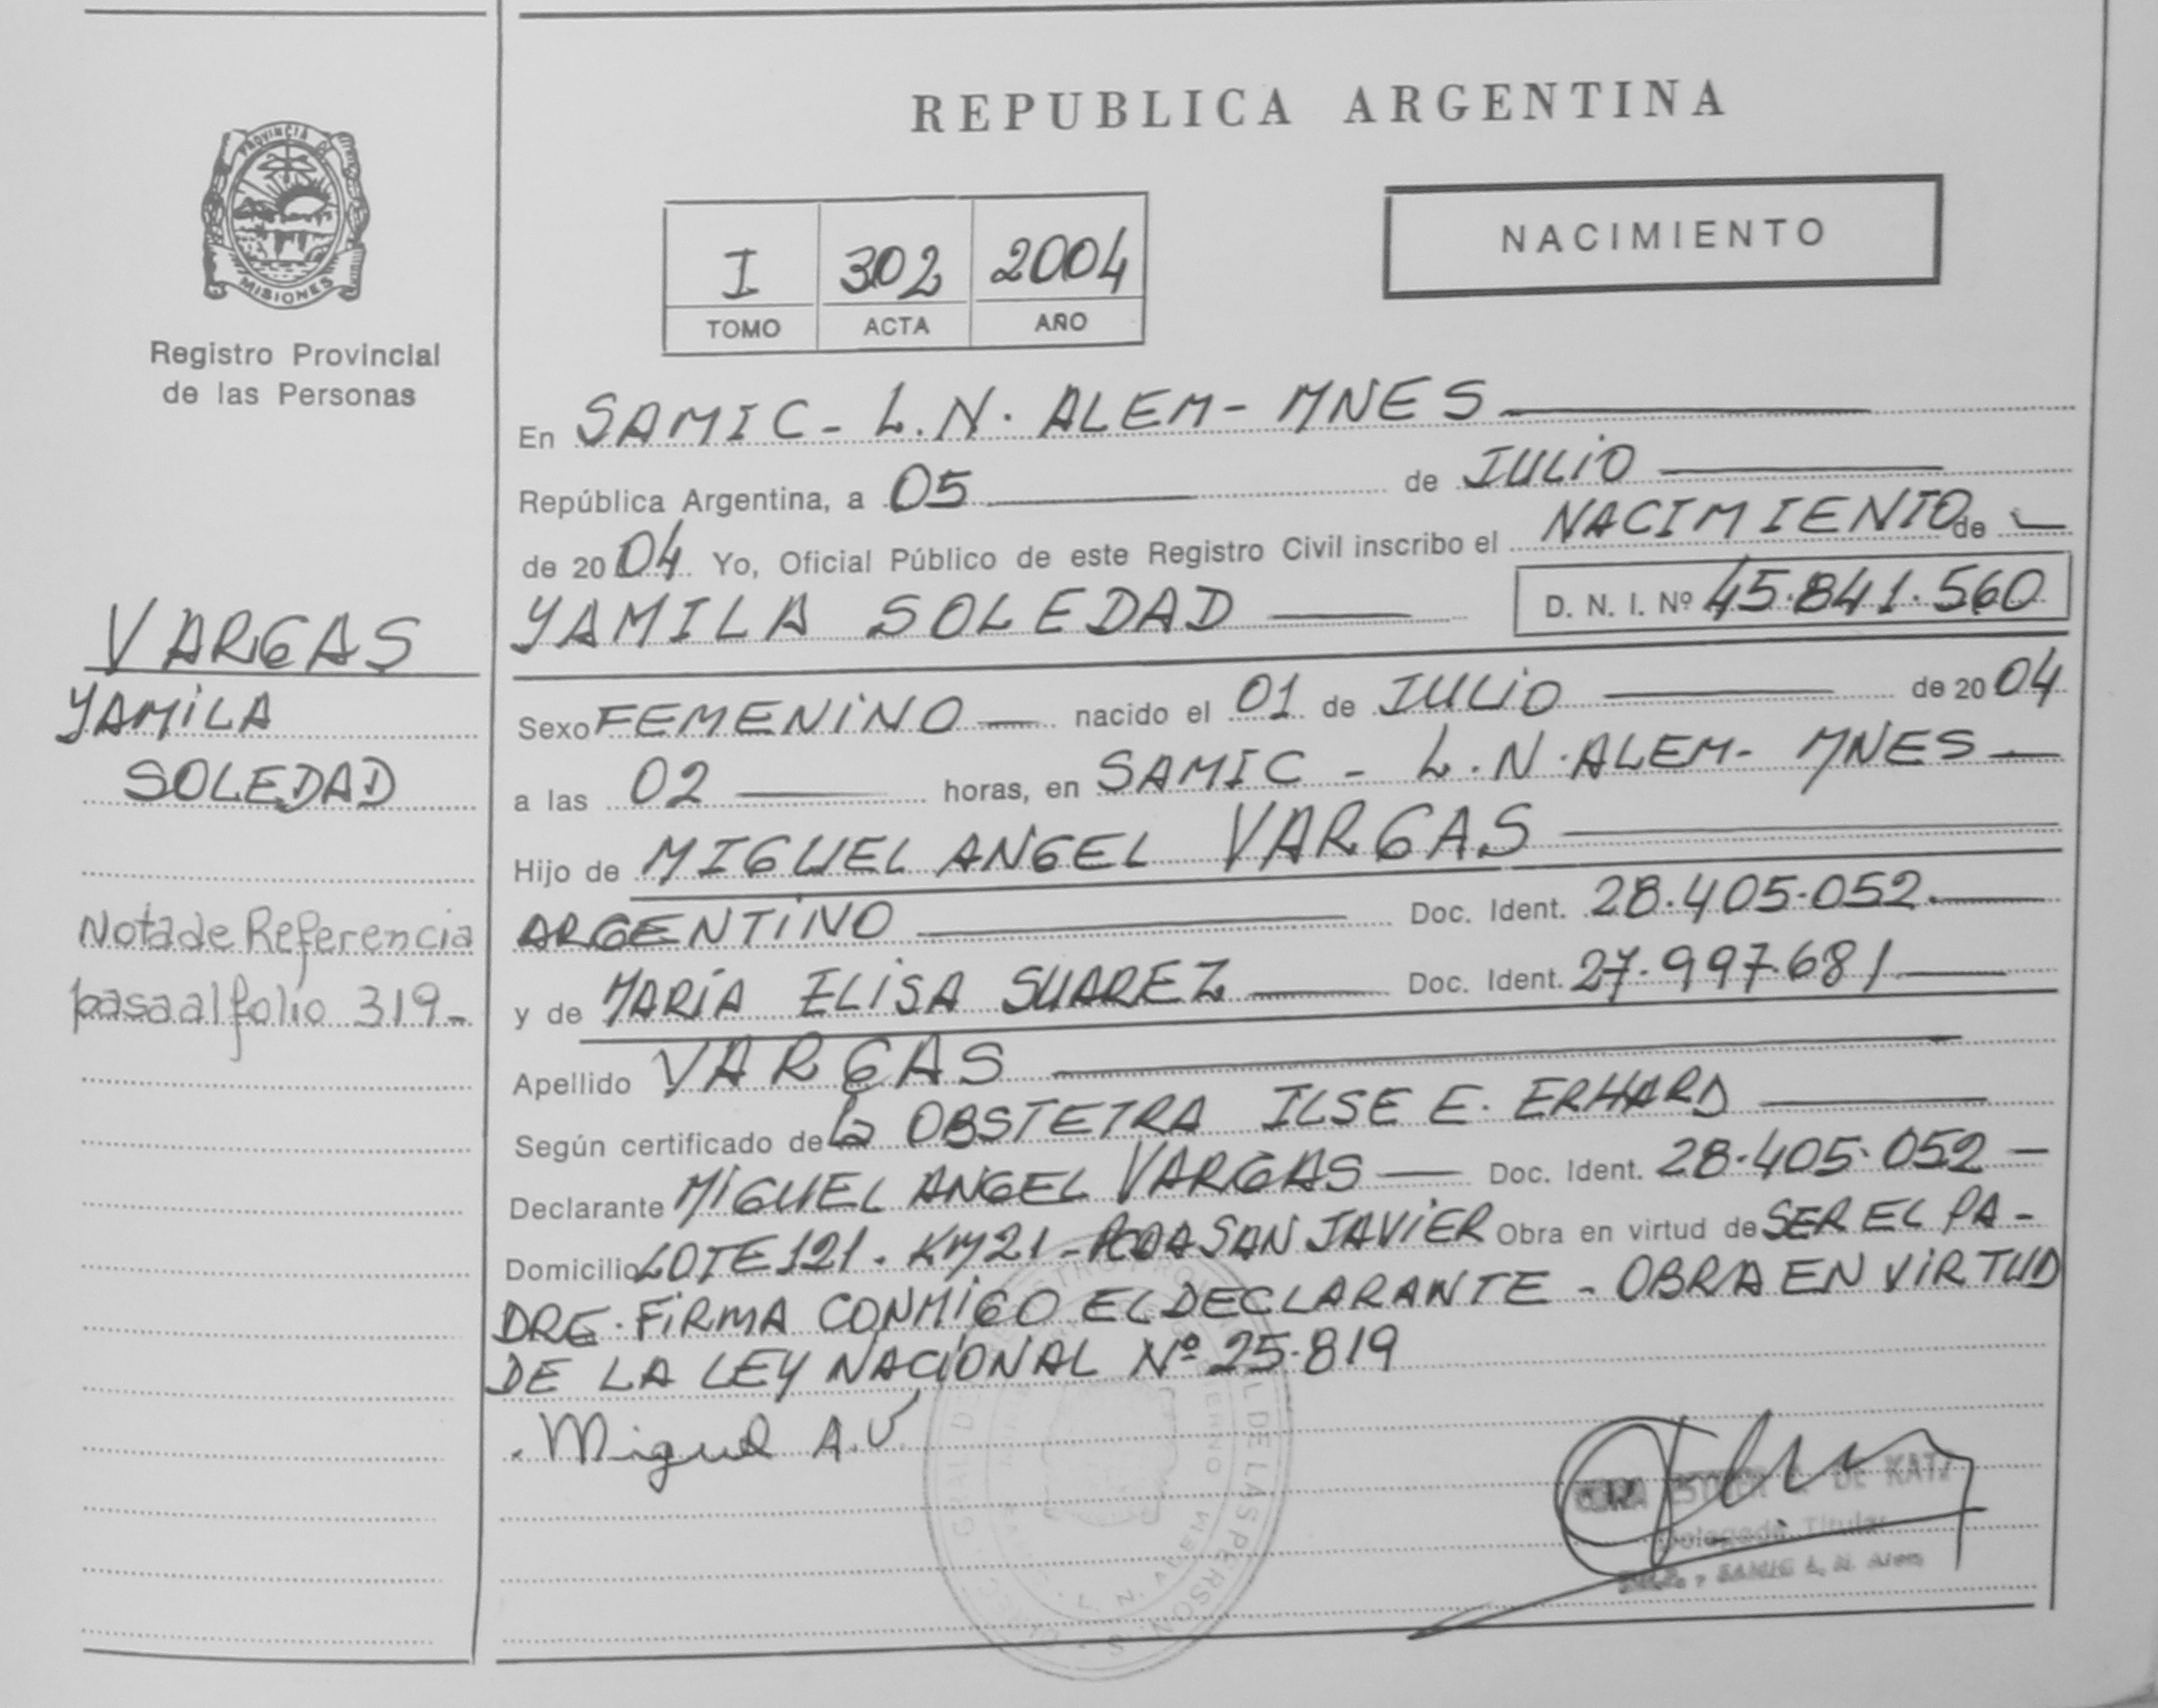 REPUBLICA ARGENTINA
PROVINCIA DE
MISIONES
Registro Provincial
de las Personas
I 302 2004
TOMO ACTA AÑO
NACIMIENTO
En SAMIC - L.N. ALEM - MNES
República Argentina, a 05 de JULIO
de 2004 Yo, Oficial Público de este Registro Civil inscribo el NACIMIENTO de
YAMILA SOLEDAD D. N. I. Nº 45.841.560
VARGAS
YAMILA
SOLEDAD
Nota de Referencia
pasa al folio 319-
Sexo FEMENINO nacido el 01 de JULIO de 2004
a las 02 horas, en SAMIC - L.N. ALEM - MNES
Hijo de MIGUEL ANGEL VARGAS
ARGENTINO Doc. Ident. 28.405.052
y de MARÍA ELISA SUAREZ Doc. Ident. 27.997.681
Apellido VARGAS
Según certificado de la OBSTETRA ILSE E. ERHARD
Declarante MIGUEL ANGEL VARGAS Doc. Ident. 28.405.052
Domicilio LOTE 121 - KM 21 - SAN JAVIER Obra en virtud de SER EL PA-
DRE. FIRMA CONMIGO EL DECLARANTE - OBRA EN VIRTUD
DE LA LEY NACIONAL Nº 25.819
Miguel A.V.
DE KATZ
Delegada Titular
SAMIC L. N. Alem